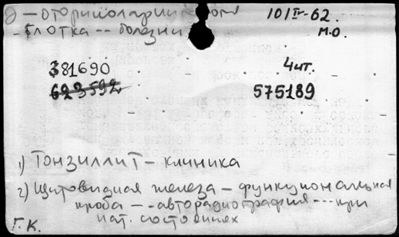 д – оториноларингология 10/IV-62.
– глотка -- болезни М.О.
381690 4ит.
623592 575189
1) Тонзиллит – клиника
2) Щитовидная железа – функциональная
проба – -авторадиография --- при
пат. состояниях
Г.К.